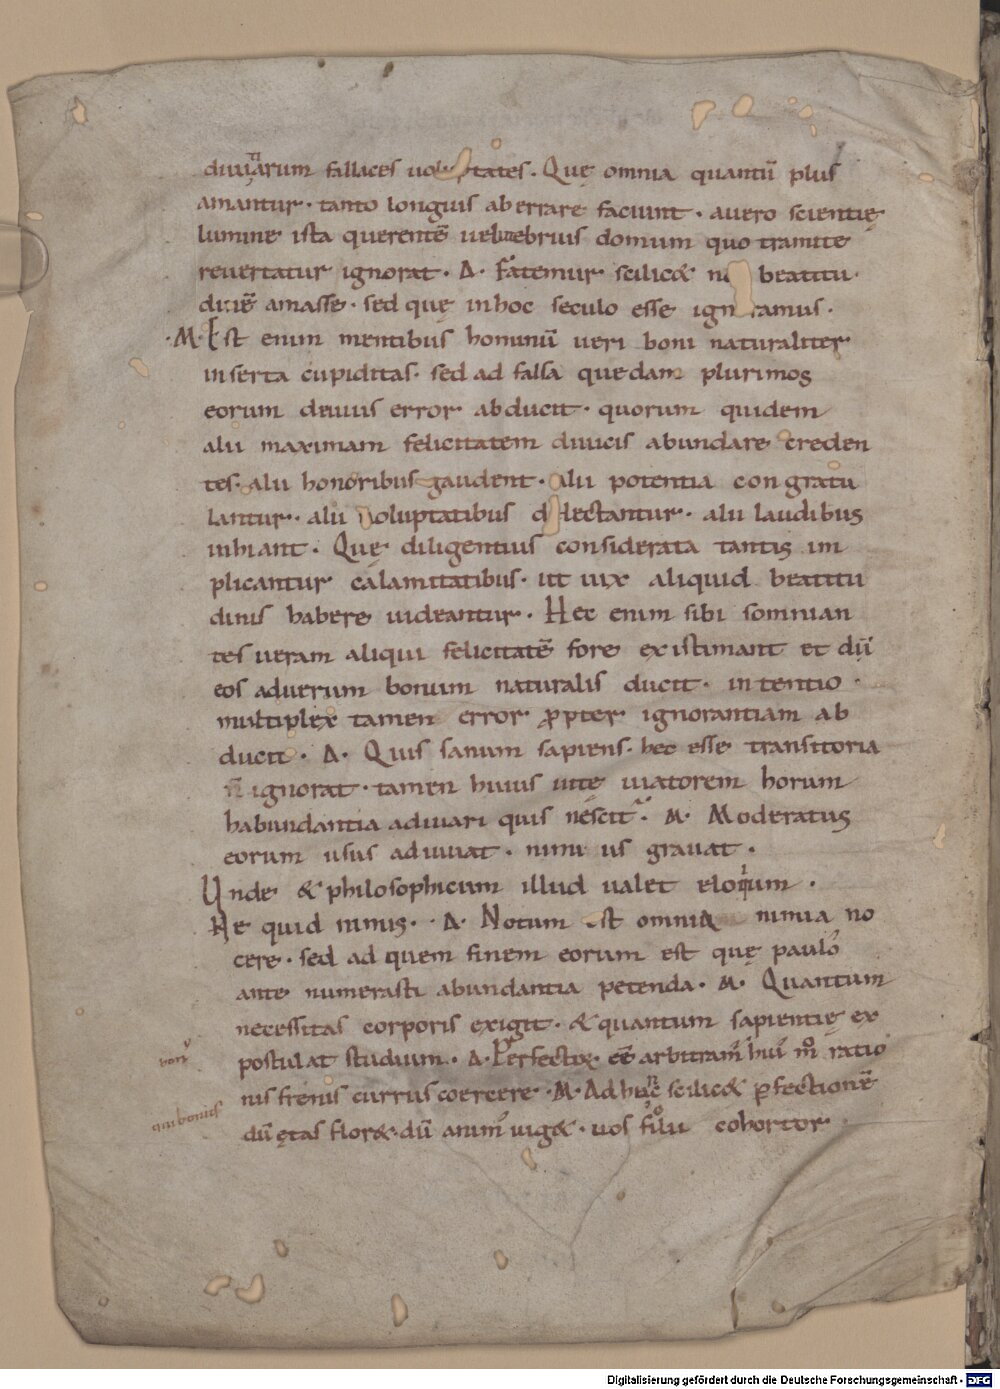 diuitiarum fallaces uoluptates. Quę omnia quantũ plus
amantur. tanto longius ab errare faciunt. a uero scientię
lumine ista querentẽ uelut ebrius domum quo tramite
reuertatur ignorat. Δ. Fatemur scilic& nos beatitu
dinẽ amasse. sed quę in hoc seculo esse ignoramus.
.M. Est enim mentibus hominũ ueri boni naturaliter
inserta cupiditas. sed ad falsa quedam plurimos
eorum deuius error abducit. quorum quidem
alii maximam felicitatem diuicis abundare creden
tes. alii honoribus gaudent. alii potentia congratu
lantur. alii uoluptatibus delectantur. alii laudibus
inhiant. Quę diligentius considerata tantis im
plicantur calamitatibus. ut uix aliquid beatitu
dinis habere uideantur. Hec enim sibi somnian
tes ueram aliqui felicitatẽ fore existimant et dũ
eos ad uerum bonum naturalis ducit. intentio.
multiplex tamen error ꝓpter ignorantiam ab
ducit. Δ. Quis sanum sapiens. hec esse transitoria
ñ ignorat. tamen huius uitę uiatorem horum
habundantia adiuuari quis nescit. M. Moderatus
eorum usus adiuuat. nimius grauat.
Unde & philosophicum illud ualet eloquium.
Ne quid nimis. Δ. Notum est omnia nimia no
cere. sed ad quem finem eorum est quę paulo
ante numerasti abundantia petenda. M. Quantum
necessitas corporis exigit. & quantum sapientię ex
postulat studium. Δ. Perfectix. eẽ arbitram̃ hui m̊ ratio
nis frenis currus coercere. M. Ad hanc scilic& ꝑfectionẽ
dũ ętas flor&. dũ anim uig&. uos filii cohortor